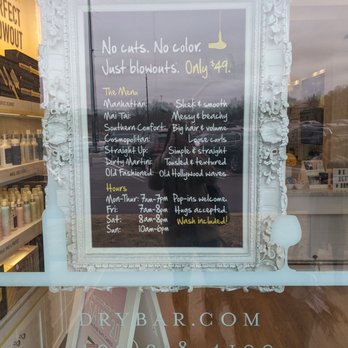 No cuts. No color.
Just blowouts. Only $49.
The Menu
Manhattan: Sleek & smooth
Mai Tai: Messy & beachy
Southern Comfort: Big hair & volume
Cosmopolitan: Loose curls
Straight Up: Simple & straight
Dirty Martini: Tousled & textured
Old Fashioned: Old Hollywood waves
Hours
Mon-Thur: 7am-7pm Pop-ins welcome.
Fri: 7am-8pm Hugs accepted.
Sat: 8am-8pm Wash included!
Sun: 10am-6pm
DRYBAR.COM